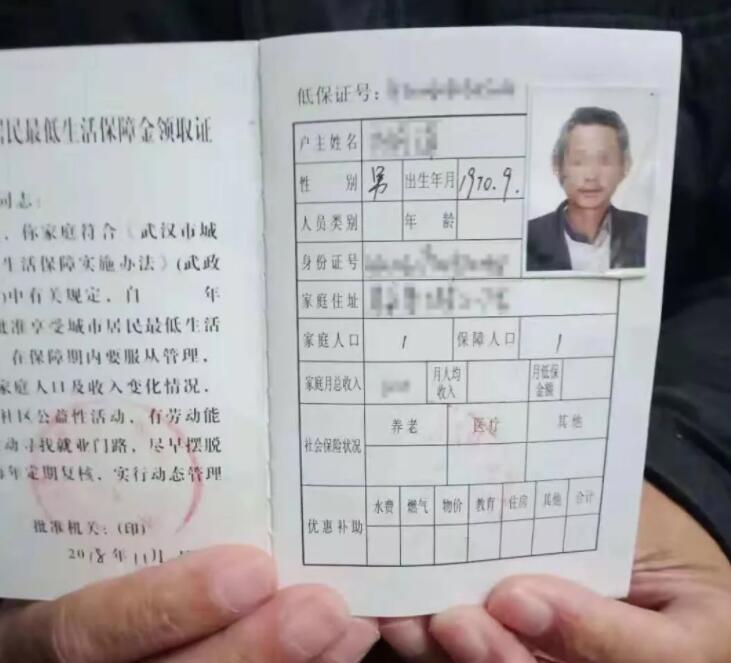 居民最低生活保障金领取证
同志:
你家庭符合《武汉市城
生活保障实施办法》(武政
中有关规定，自 年
批准享受城市居民最低生活
在保障期内要服从管理，
家庭人口及收入变化情况，
社区公益性活动，有劳动能
动寻找就业门路，尽早摆脱
年定期复核，实行动态管理
批准机关：(印)
2018年11月
低保证号：
户主姓名
性别 男 出生年月 1970.9.
人员类别 年龄
身份证号
家庭住址
家庭人口 1 保障人口 1
家庭月总收入 月人均收入 月低保金额
社会保险状况 养老 医疗 其他
优惠补助 水费 燃气 物价 教育 住房 其他 合计